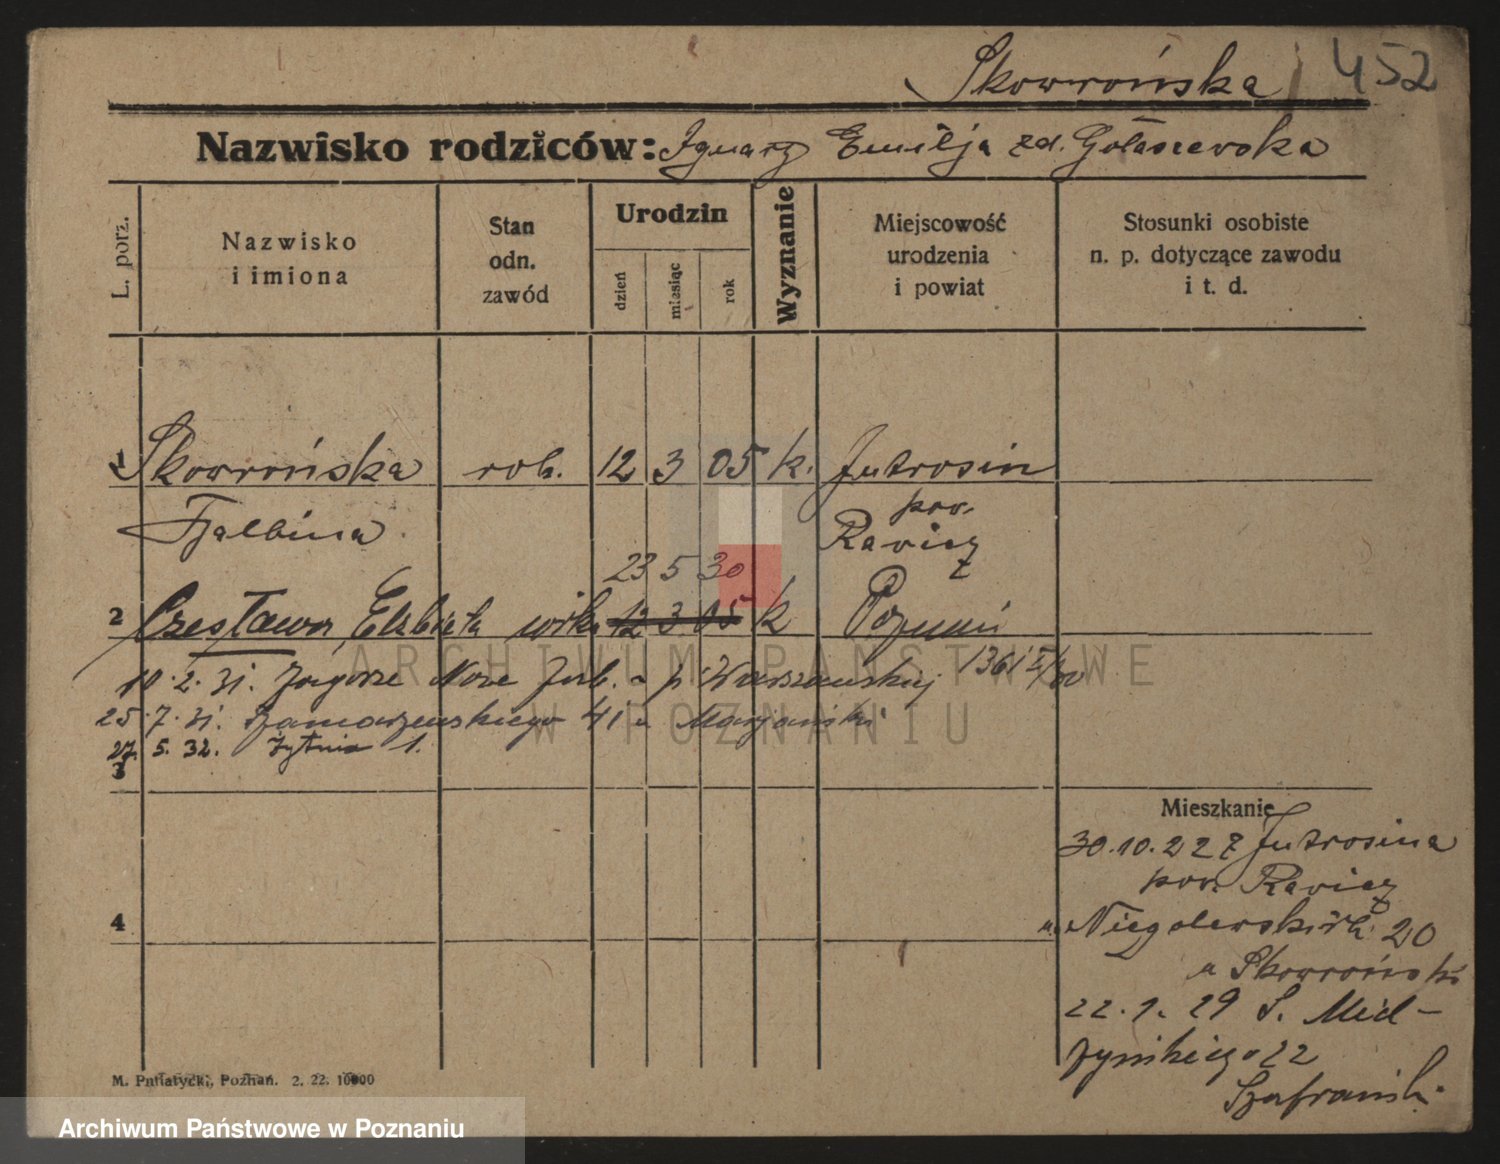 Skowrońska 452
Nazwisko rodziców: Ignacy Emilja zd. Gołaszewska
L. porz.
Nazwisko i imiona
Stan odn. zawód
Urodzin
dzień
miesiąc
rok
Wyznanie
Miejscowość urodzenia i powiat
Stosunki osobiste n. p. dotyczące zawodu i t. d.
1 Skowrońska rob. 12 3 05 k. Jutrosin
pow.
Balbina Rawicz
23 5 30
2 Czesława, Elżbieta 12 3 05 k Poznań
10. 2. 31. Nowe p. Warszawskiej
25. 7. 31. Szamarzewskiego 41 u Marjański
27. 5. 32. Żytnia 1.
3
Mieszkanie
30. 10. 22 z Jutrosina
pow. Rawicz
u. Niegolewskich 20
u Skowroński
22. 1. 29 S.
22
Szafrański
4
M. Putiatycki, Poznań. 2. 22. 10000
ARCHIWUM PAŃSTWOWE
W POZNANIU
Archiwum Państwowe w Poznaniu